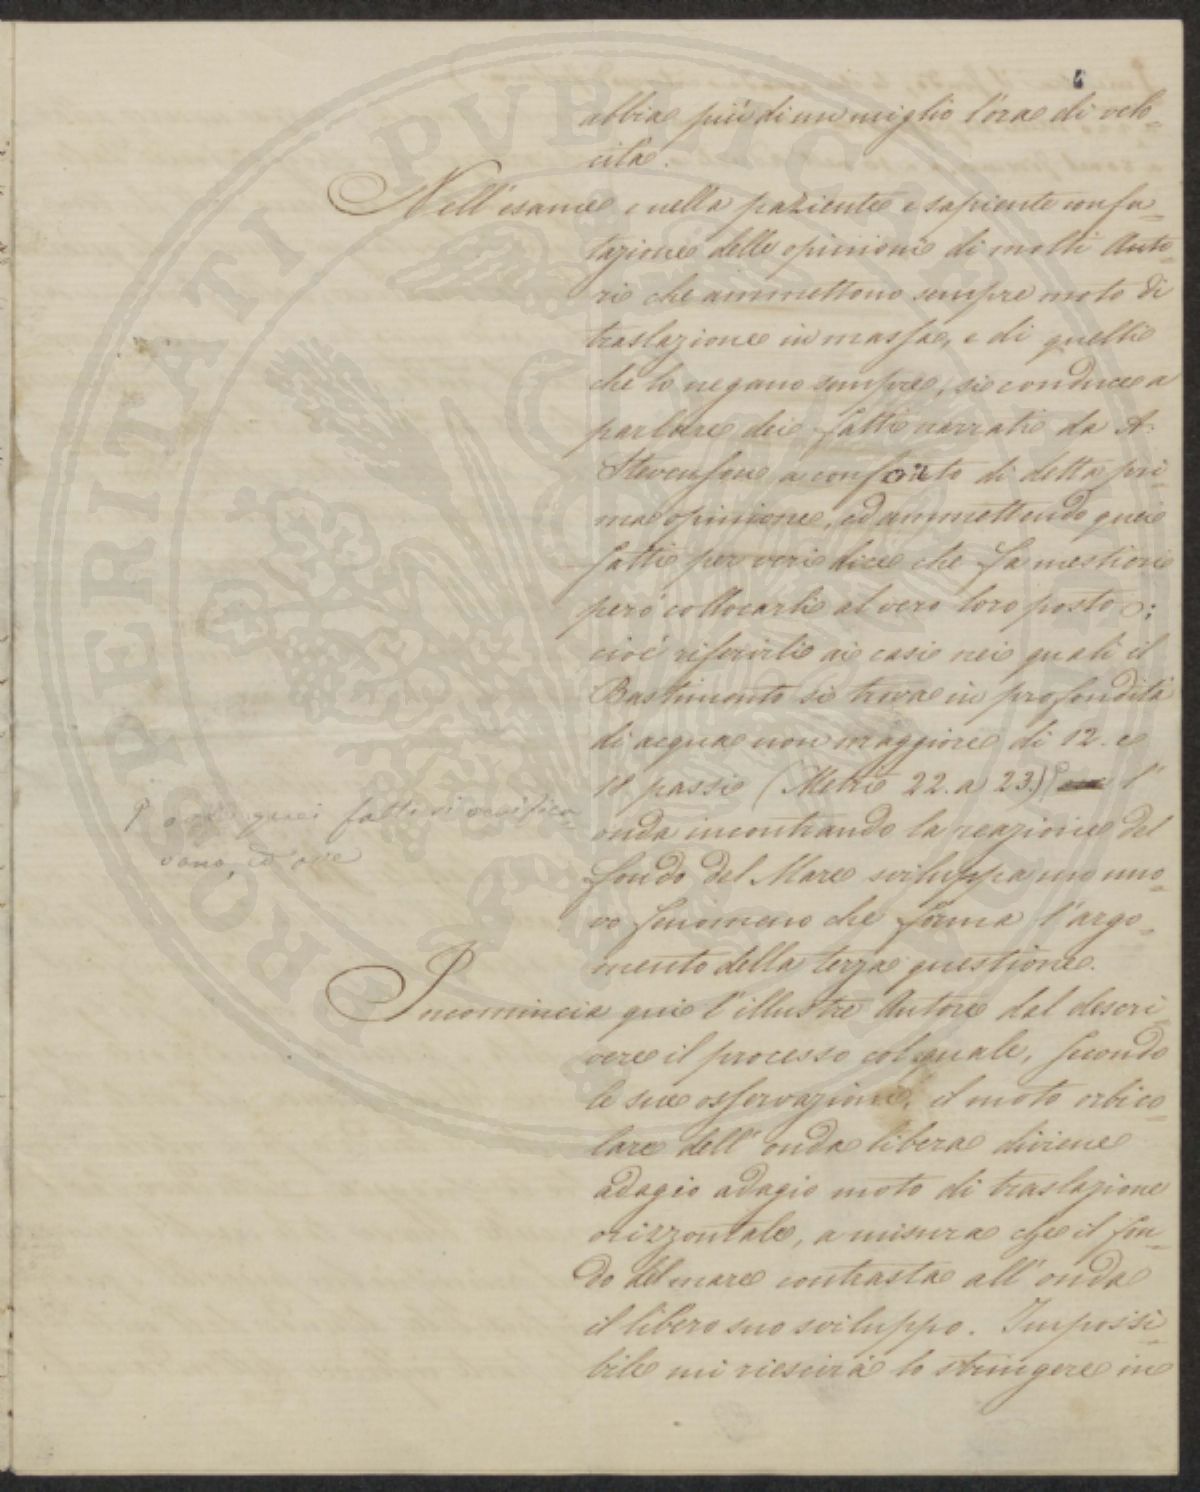 6
abbia più di un miglio l'ora di velo-
cità.
Nell'esame e nella paziente e sapiente confu-
tazione delle opinioni di molti Auto-
ri che ammettono sempre moto di
traslazione in massa, e di quelli
che lo negano sempre, si conduce a
parlare dei fatti narrati da A.
Stevenson a conforto di detta pri-
ma opinione, ed ammettendo quei
fatti per veri dice che fa mestieri
però collocarli al vero loro posto;
cioè riferirli ai casi nei quali il
Bastimento si trova in profondità
di acqua non maggiore di 12. e
18 passi (Metri 22. a 23.) l'
quei fatti si verifica-
vano, ed ove
onda incontrando la reazione del
fondo del Mare sviluppa un nuo-
vo fenomeno che forma l'argo-
mento della terza questione.
Incomincia qui l'illustre Autore dal descri-
vere il processo col quale, secondo
le sue osservazioni, il moto orbico-
lare dell'onda libera diviene
adagio adagio moto di traslazione
orizzontale, a misura che il fon-
do del mare contrasta all'onda
il libero suo sviluppo. Impossi-
bile mi riescirà lo stringere in
PROSPERITATI PVBLICAE